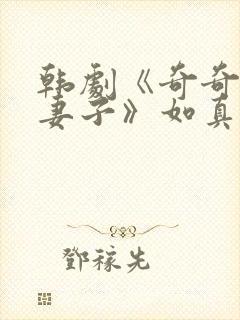 韩劇《奇奇
妻子》如真
鄧稼先